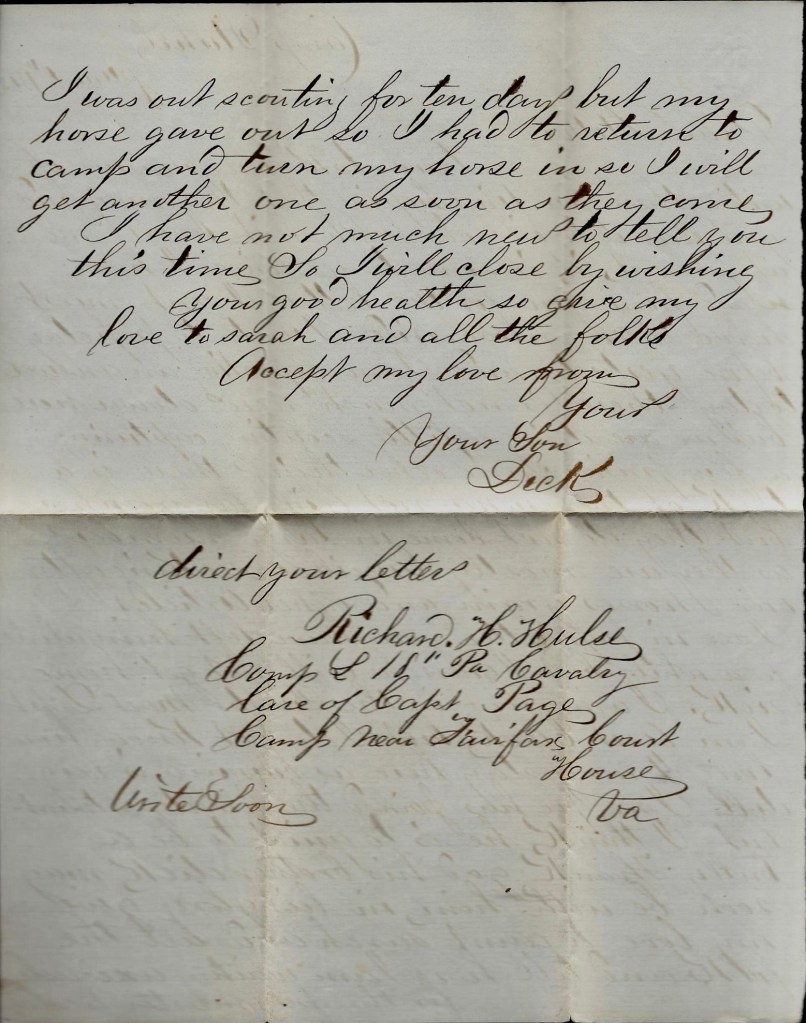 I was out scouting for ten days but my
horse gave out so I had to return to
camp and turn my horse in so I will
get another one as soon as they come
I have not much news to tell you
this time So I will close by wishing
your good health so give my
love to sarah and all the folks
Accept my love from
Yours
Your Son
Dick
direct your letters
Richard. H. Hulse
Comp L 18" Pa Cavalry
Care of Capt Page
Camp near Fairfax Court
House
Write Soon
Va